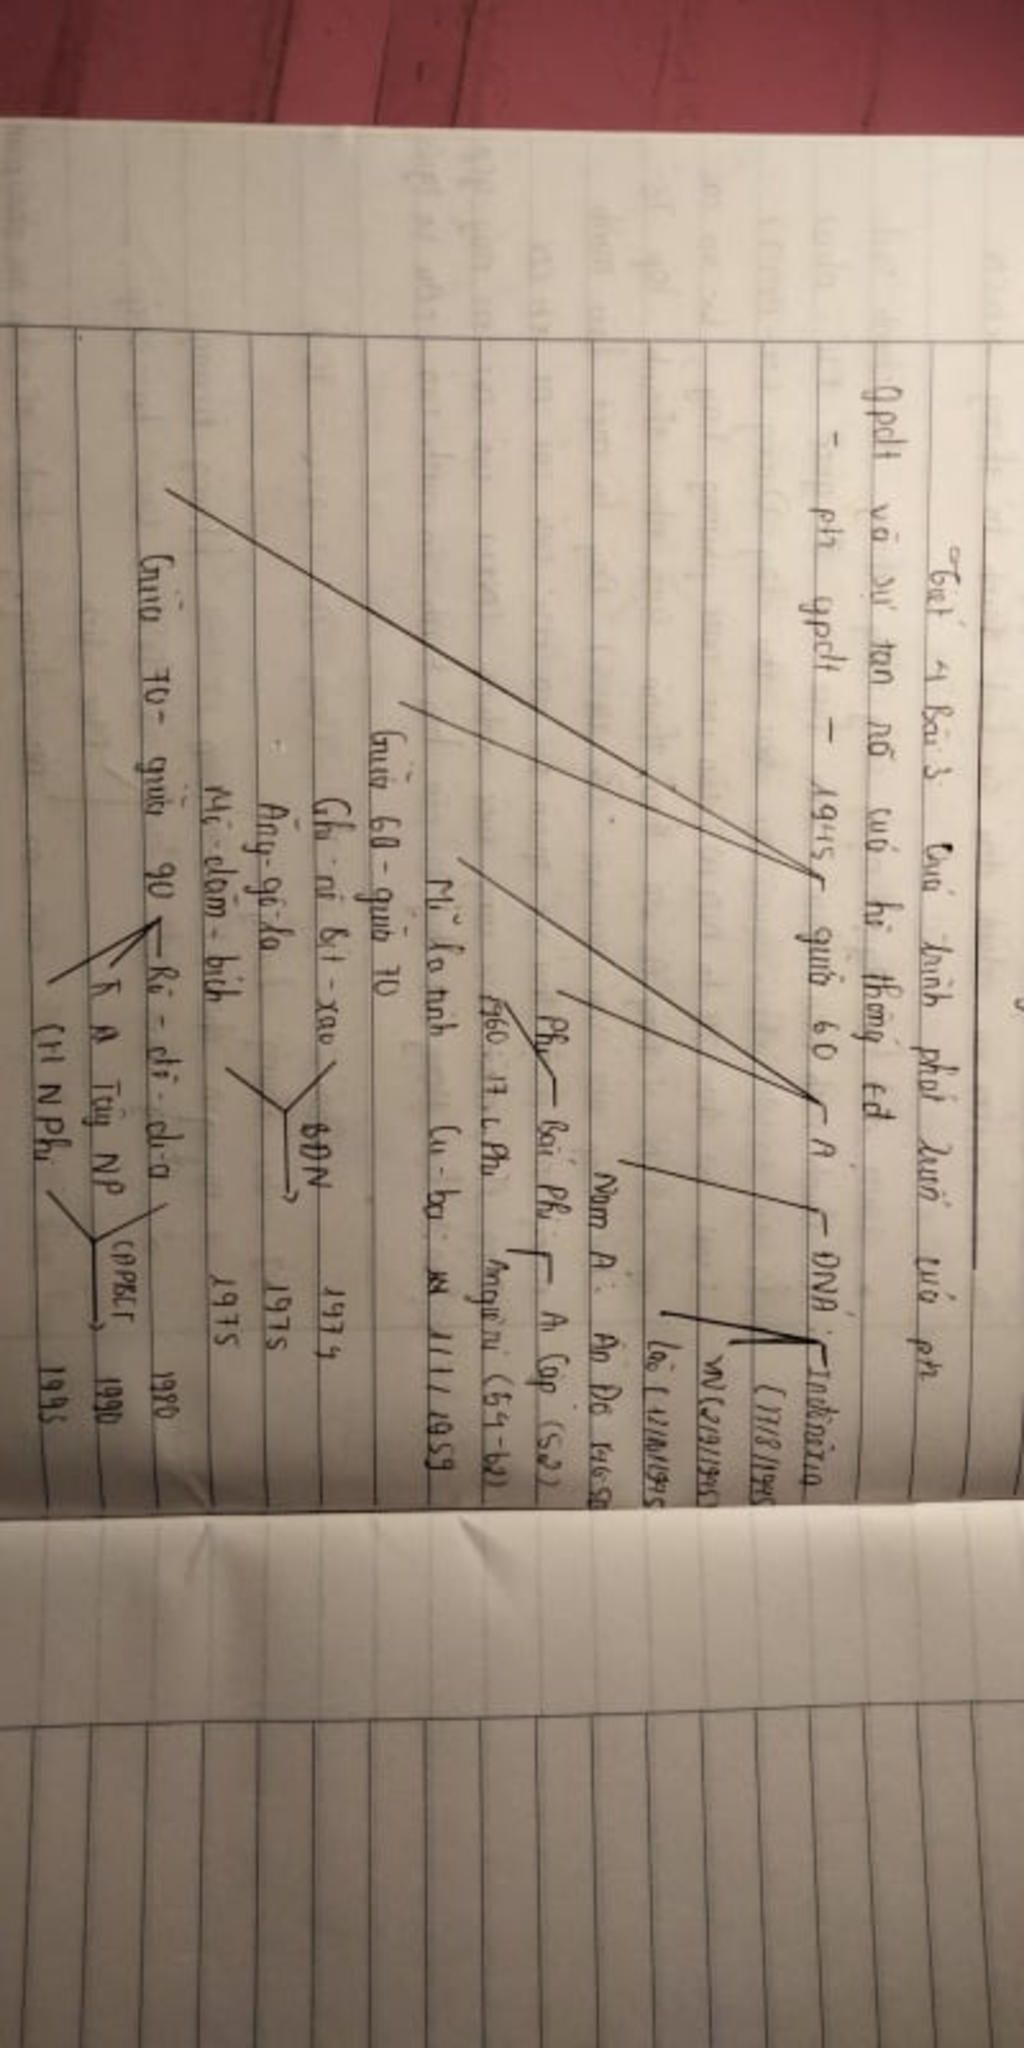 Tiết 4 Bài 3 Quá trình phát triển của ptr
gpdt và sự tan rã của hệ thống tđ
- ptr gpdt - 1945 giữa 60 Á ĐNÁ: Inđônêxia
(17/8/1945
VN (2/9/1945)
Lào (12/10/1945
Nam Á: Ấn Độ 1946-50
Phi Bắc Phi Ai Cập (52)
1960: 17 c Phi Angiêri (54-62)
Mĩ la tinh Cu-ba: 1/1/1959
Giữa 60 - giữa 70
Ghi-nê Bit-xao BĐN 1974
Ăng-gô-la 1975
Mô-dăm-bich 1975
Giữa 70 - giữa 90 Rô-dê-di-a 1980
Tây NP CĐPBCT 1990
CH N Phi 1993